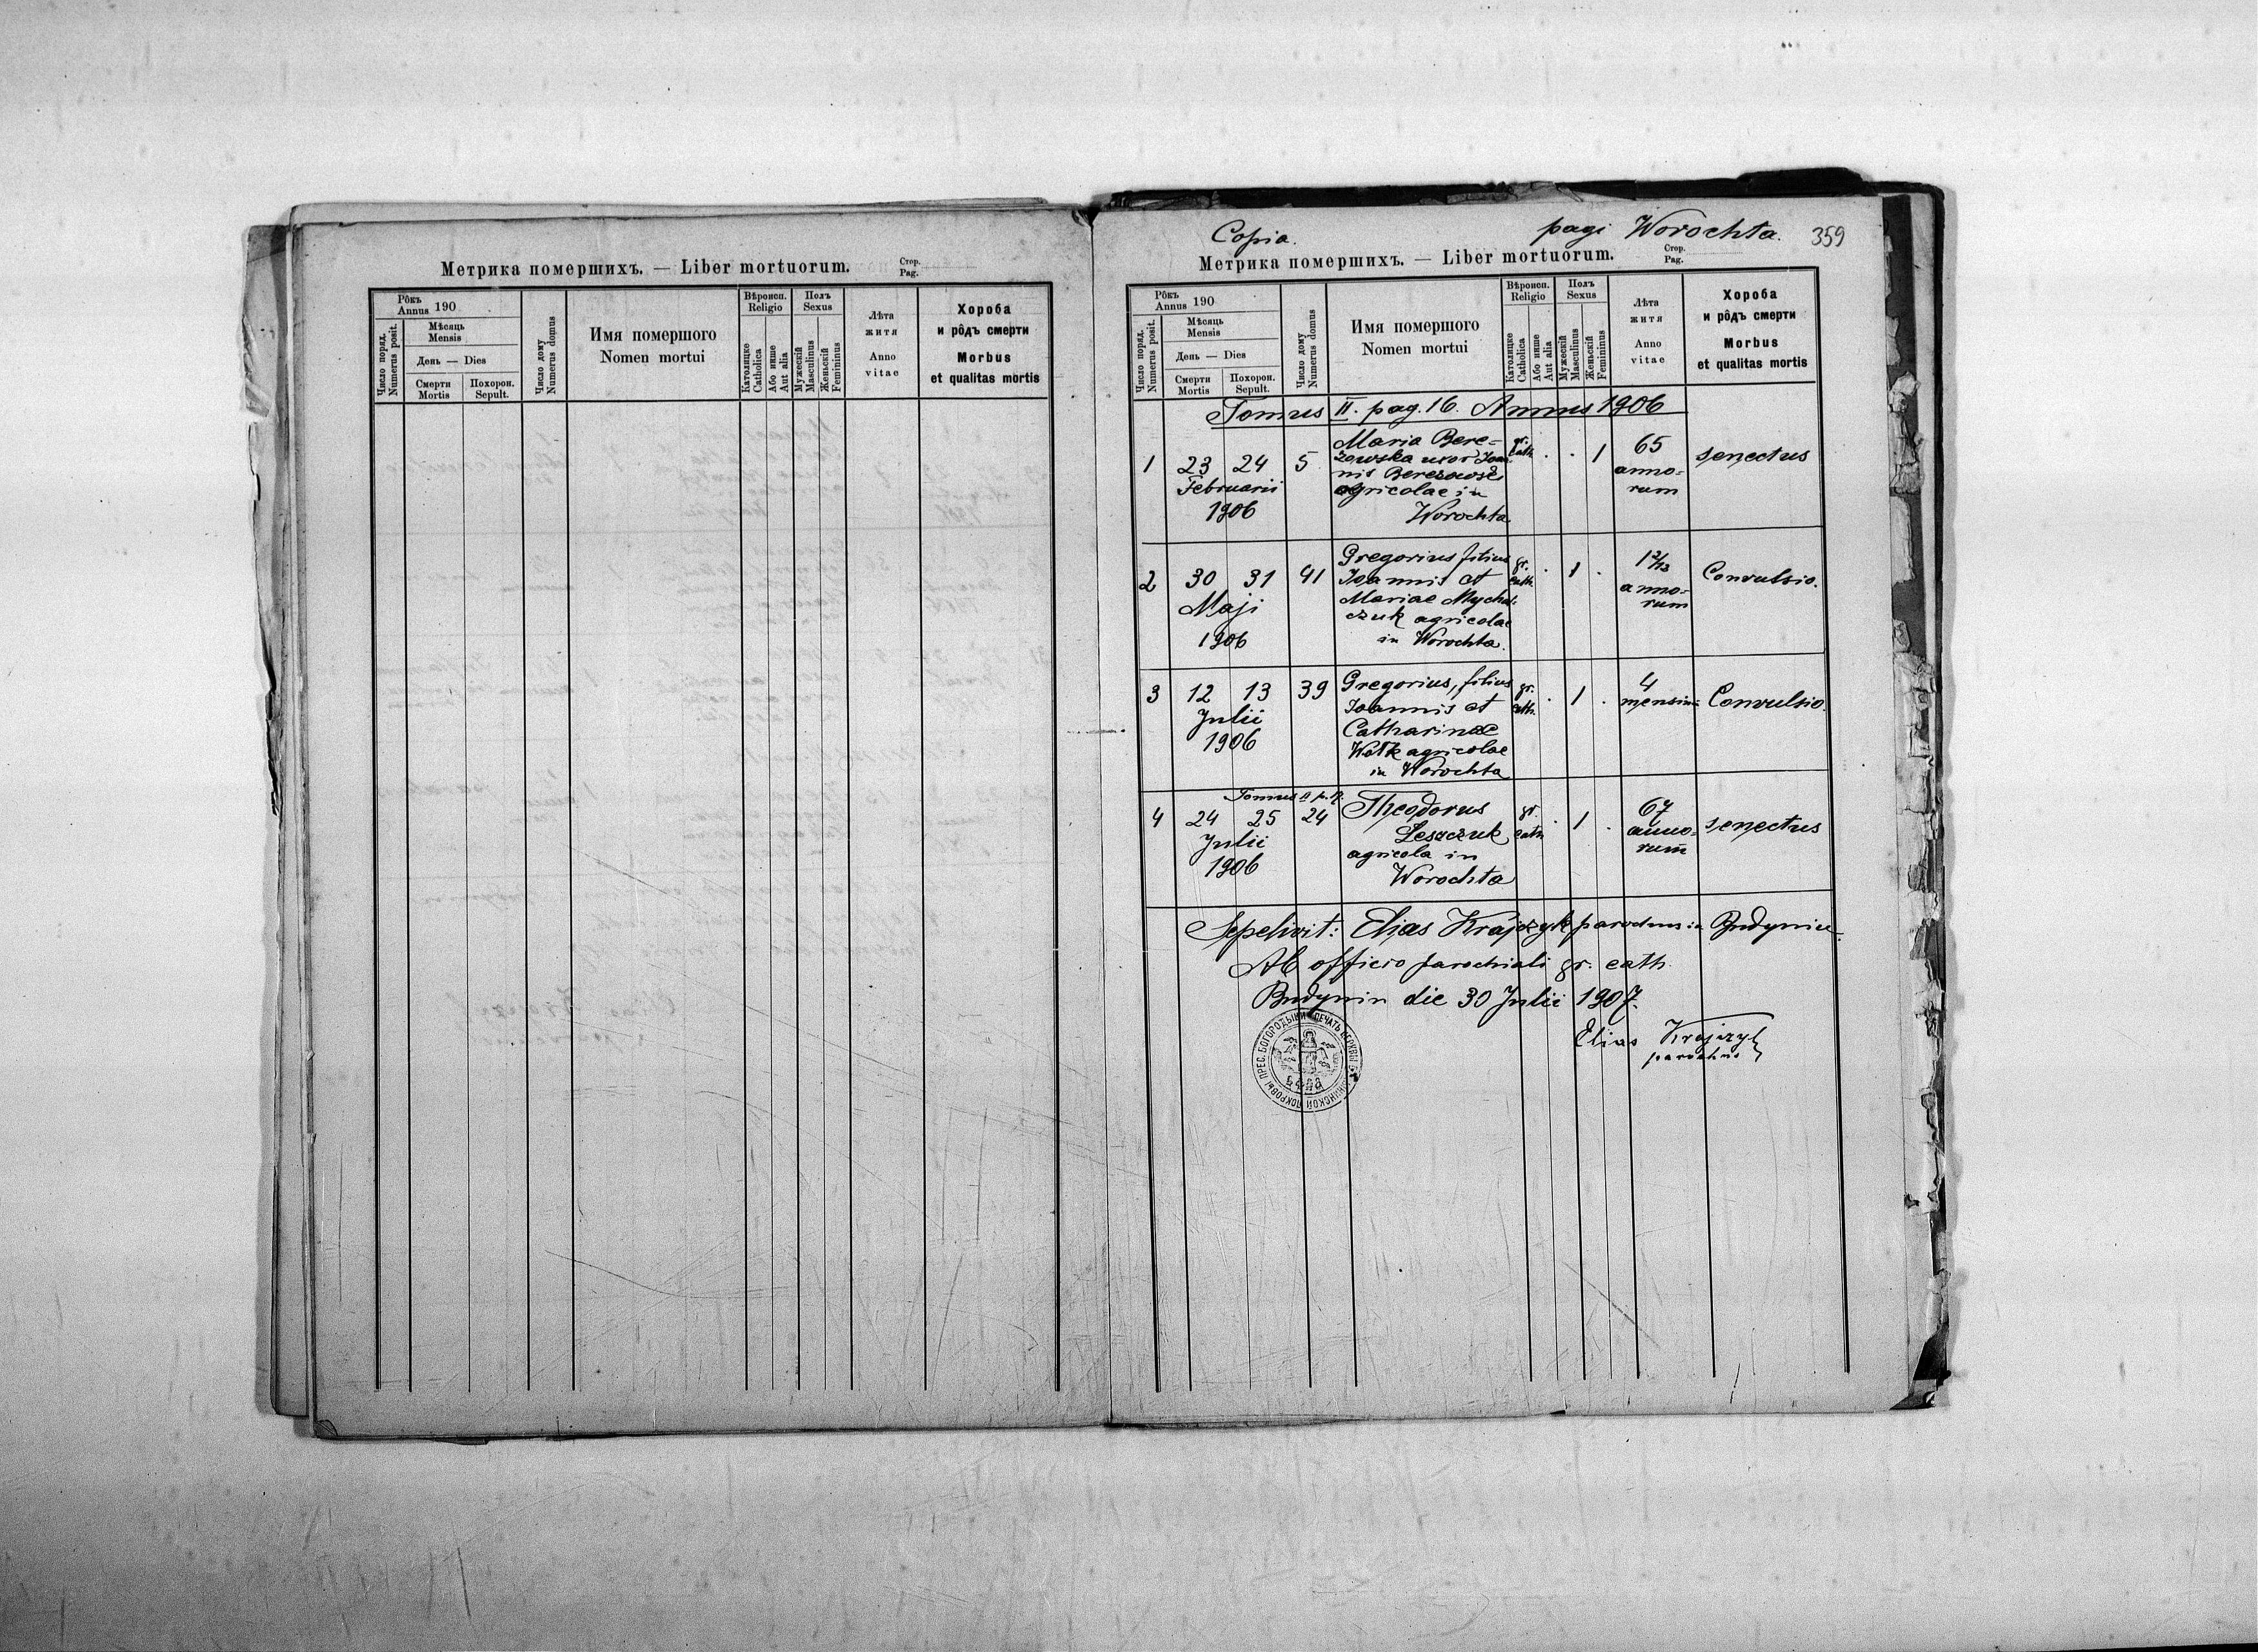 Метрика помершихъ. — Liber mortuorum.
Стор.
Pag.
Рôкъ
Annus 190
Мѣсяць
Mensis
День — Dies
Число поряд.
Numerus posit.
Смерти
Mortis
Похорон.
Sepult.
Число дому
Numerus domus
Имя помершого
Nomen mortui
Вѣроисп.
Religio
Католицке
Catholica
Або инше
Aut alia
Полъ
Sexus
Мужескій
Masculinus
Женьскій
Femininus
Лѣта
житя
Anno
vitae
Хороба
и рôдъ смерти
Morbus
et qualitas mortis
Copia.
pagi Worochta.
359
Метрика помершихъ. — Liber mortuorum.
Стор.
Pag.
Рôкъ
Annus 190
Мѣсяць
Mensis
День — Dies
Число поряд.
Numerus posit.
Смерти
Mortis
Похорон.
Sepult.
Число дому
Numerus domus
Имя помершого
Nomen mortui
Вѣроисп.
Religio
Католицке
Catholica
Або инше
Aut alia
Полъ
Sexus
Мужескій
Masculinus
Женьскій
Femininus
Лѣта
житя
Anno
vitae
Хороба
и рôдъ смерти
Morbus
et qualitas mortis
Tomus II. pag. 16. Annus 1906
1 23 24 5 Maria Bere= gr. cath. . . 1 65 senectus
Februarii zowska uxor Joan- anno=
1906 nis Berezowski rum
agricolae in
Worochta
2 30 31 41 Gregorius filius gr. cath. . 1 . 1 2/12 Convulsio.
Maji Joannis et anno=
1906 Mariae Mychal- rum
czuk agricolae
in Worochta.
3 12 13 39 Gregorius, filius gr. cath. . 1 . 4 Convulsio.
Julii Joannis et mensium
1906 Catharinae
Wołk agricolae
in Worochta
Tomus II p. 17.
4 24 25 24 Theodorus gr. cath. . 1 . 67 senectus
Julii Lesaczuk anno=
1906 agricola in rum
Worochta
Sepelivit: Elias Krajczyk parochus in Budynin.
Ab officio parochiali gr. cath.
Budynin die 30 Julii 1907.
Elias Krajczyk
parochus
ПЕЧАТЬ ЦЕРКВИ ПОКРОВЫ ПРЕС. БОГОРОДИЦЫ